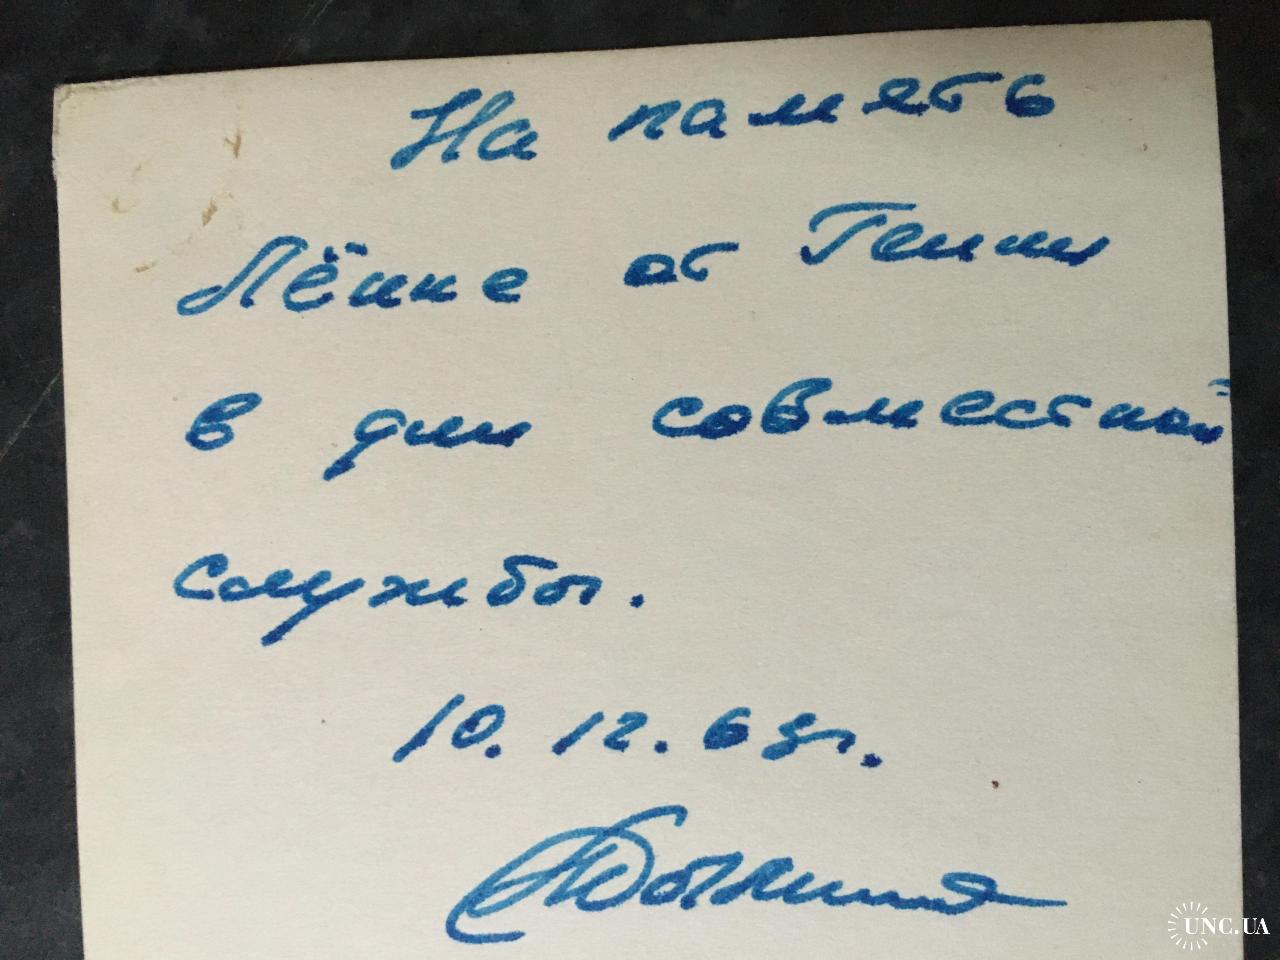 На память
Лёнке от Гении
в дни совместной
службы.
10.12.69г.
UNC.UA